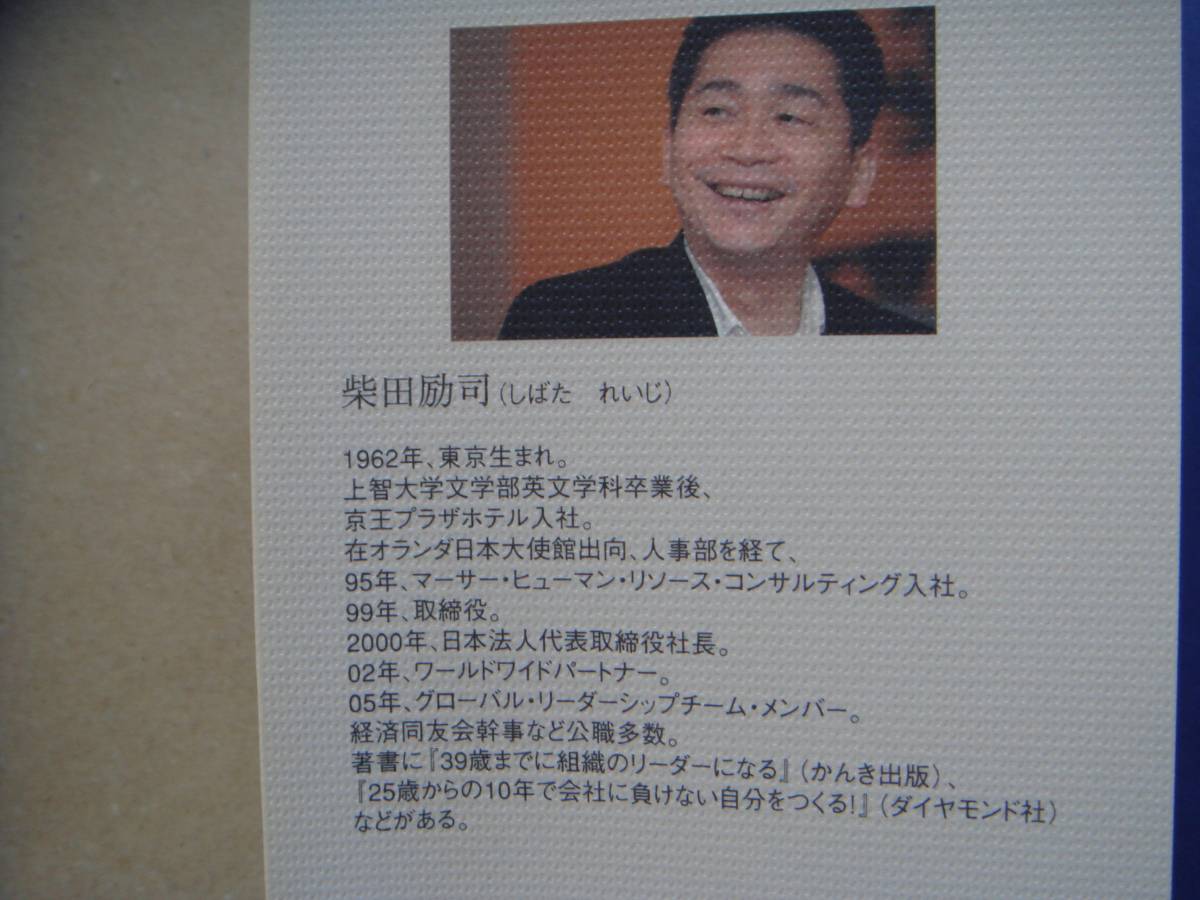 柴田励司(しばた　れいじ)
1962年、東京生まれ。
上智大学文学部英文学科卒業後、
京王プラザホテル入社。
在オランダ日本大使館出向、人事部を経て、
95年、マーサー・ヒューマン・リソース・コンサルティング入社。
99年、取締役。
2000年、日本法人代表取締役社長。
02年、ワールドワイドパートナー。
05年、グローバル・リーダーシップチーム・メンバー。
経済同友会幹事など公職多数。
著書に『39歳までに組織のリーダーになる』(かんき出版)、
『25歳からの10年で会社に負けない自分をつくる!』(ダイヤモンド社)
などがある。